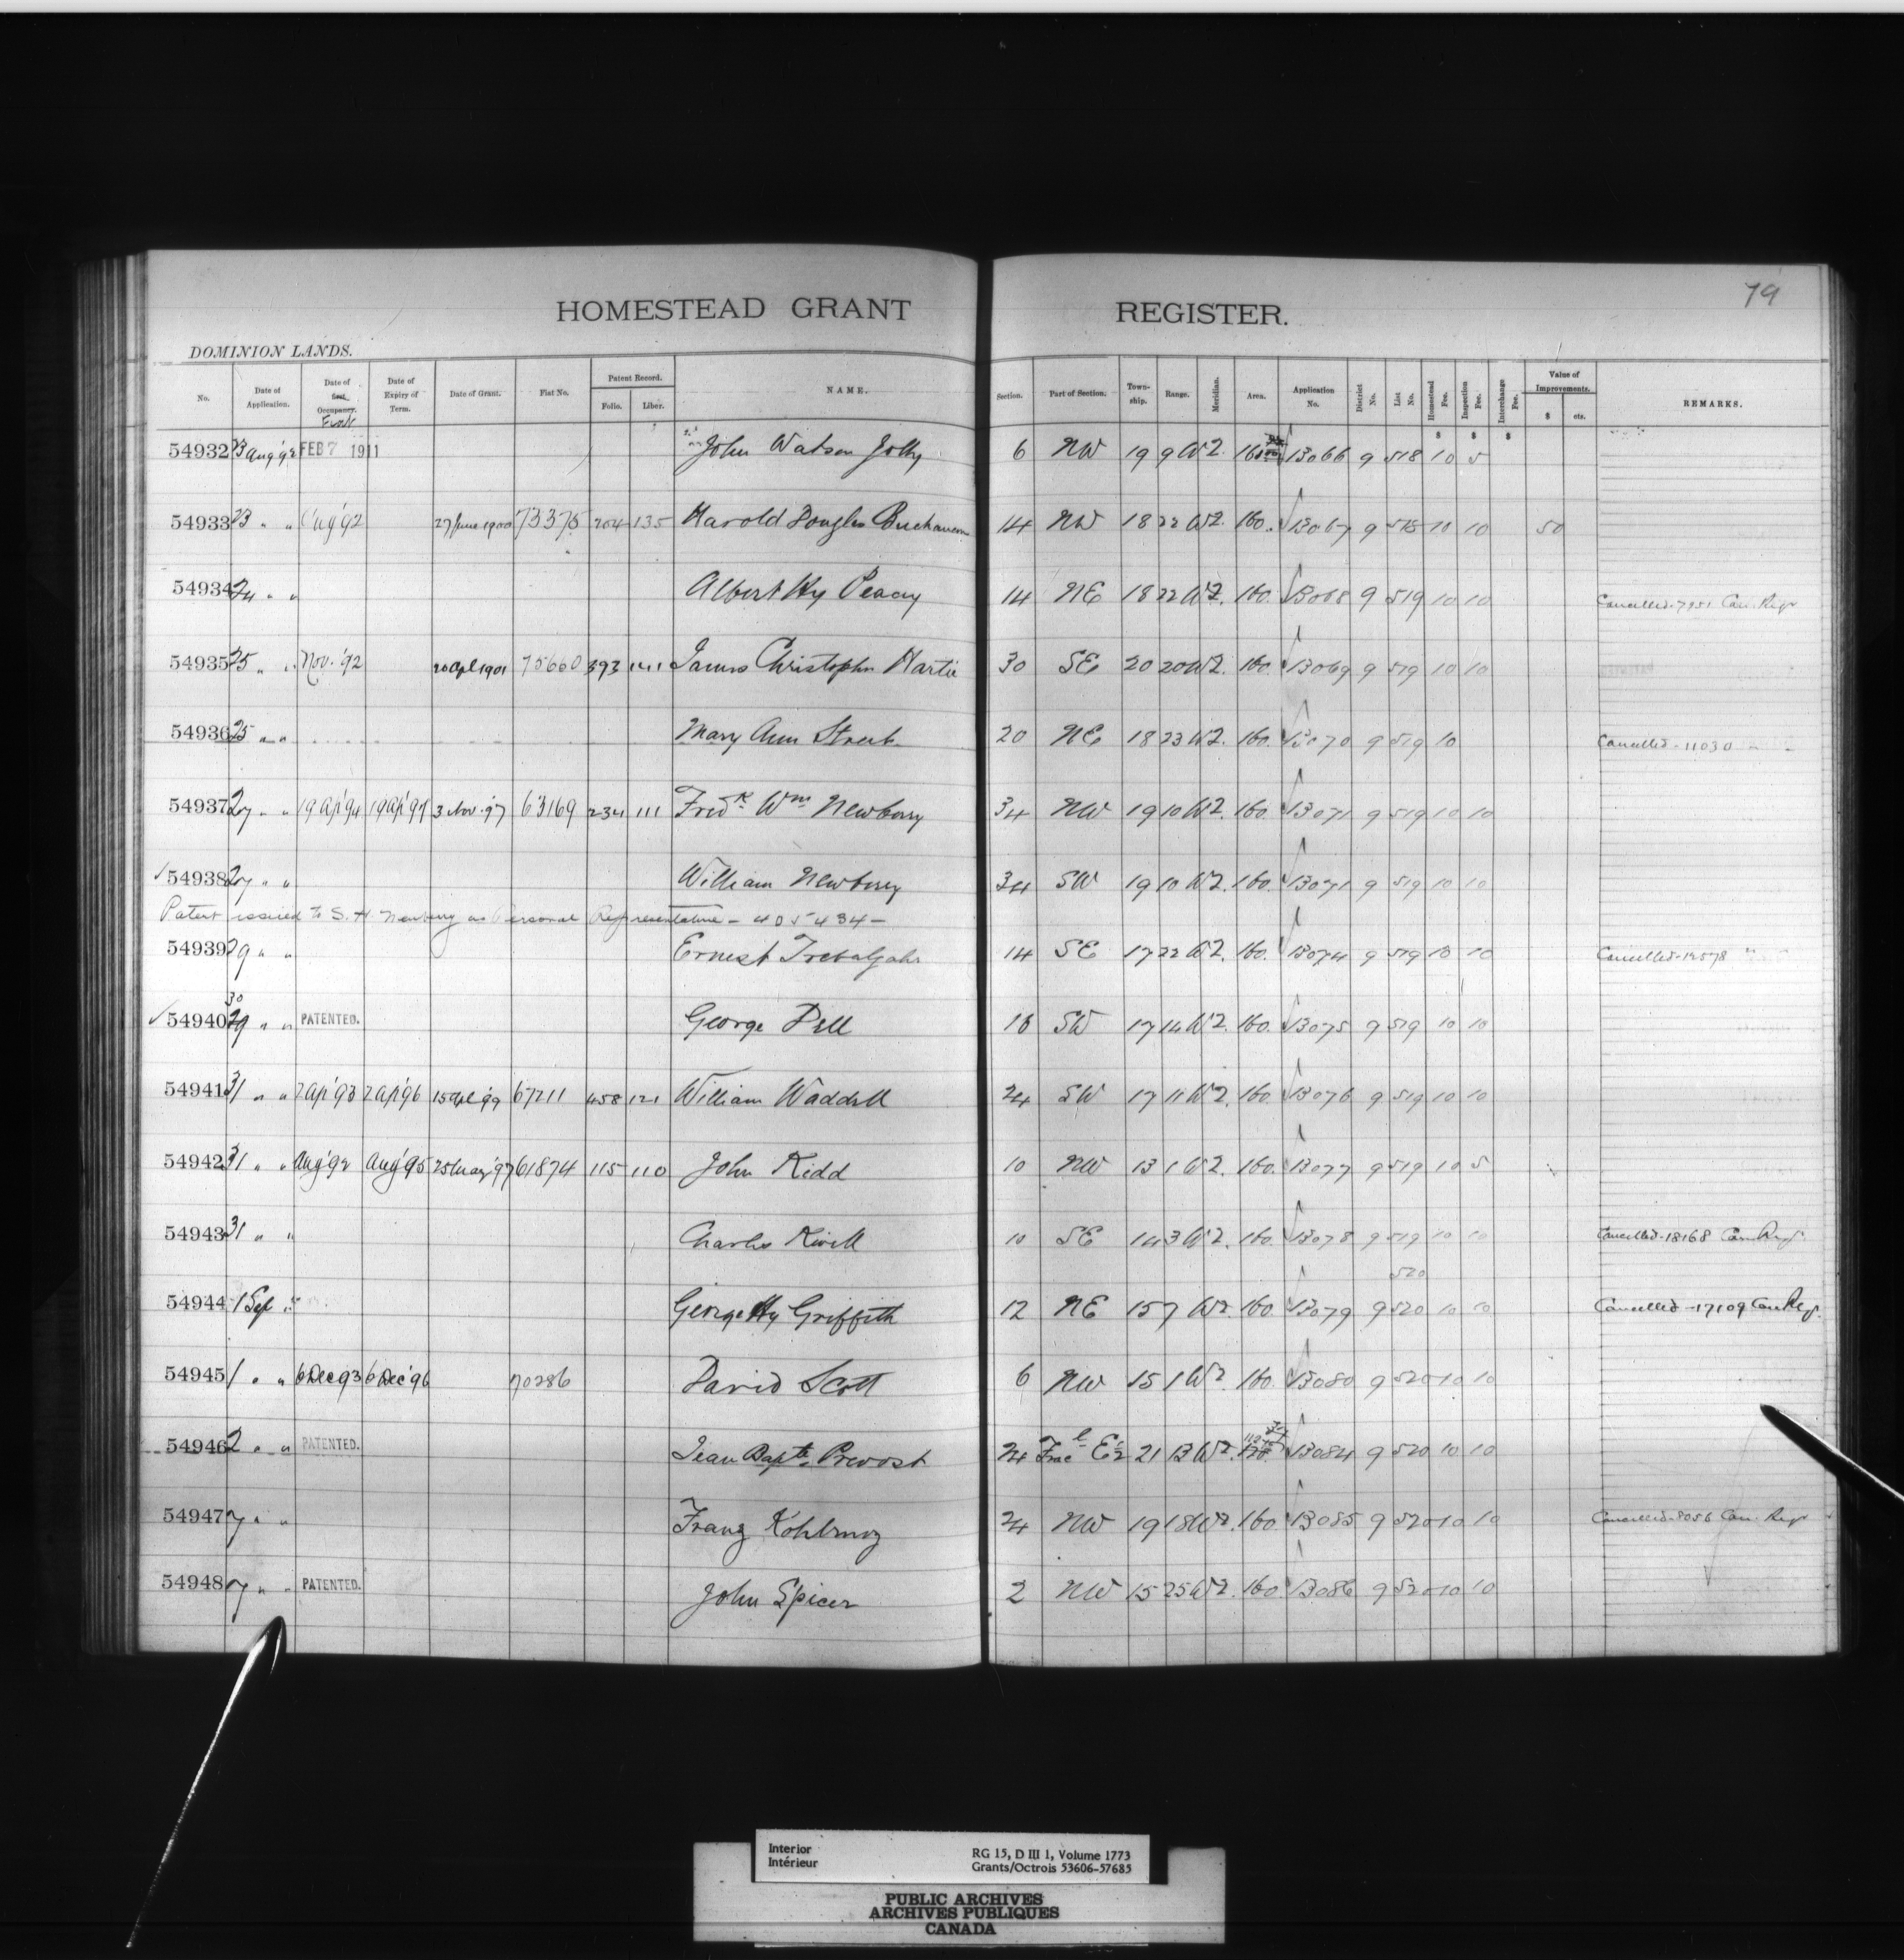 79
HOMESTEAD GRANT REGISTER.
DOMINION LANDS.
No. Date of Application. Date of Occupancy. Date of Expiry of Term. Date of Grant. Fiat No. Patent Record. Folio. Liber. NAME. Section. Part of Section. Township. Range. Meridian. Area. Application No. District No. List No. Homestead Fee. Inspection Fee. Interchange Fee. Value of Improvements. $ cts. REMARKS.
$ $ $
54932 23 Aug '92 FEB 7 1911 John Watson Jolly 6 NW 19 9 W2. 13066 9 518 10 5
54933 23 " " Aug '92 27 June 1900 73375 204 135 Harold Douglas Buchanan 14 NW 18 22 W2. 160. 13067 9 518 10 10 50
54934 24 " " Albert Hy Peacy 14 NE 18 22 W2. 160. 13068 9 519 10 10 Cancelled-7951 Can. Regr
54935 25 " " Nov. '92 20 Apl 1901 75660 393 141 James Christopher Martin 30 SE 20 20 W2. 160. 13069 9 519 10 10
54936 25 " " Mary Ann Street 20 NE 18 23 W2. 160. 13070 9 519 10 Cancelled-11030 " "
54937 27 " " 19 Ap '94 19 Ap '97 3 Nov '97 63169 234 111 Fredk Wm Newberry 34 NW 19 10 W2. 160. 13071 9 519 10 10
54938 27 " " William Newberry 34 SW 19 10 W2. 160. 13071 9 519 10 10
Patent issued to S. H. Newberry as Personal Representative - 405434 -
54939 29 " " Ernest 14 SE 17 22 W2. 160. 13074 9 519 10 10 Cancelled-12578 " "
30
54940 29 " " PATENTED. George Dell 16 SW 17 14 W2. 160. 13075 9 519 10 10
54941 31 " " 2 Ap '93 2 Ap '96 15 Apl '99 67211 458 121 William Waddell 24 SW 17 11 W2. 160. 13076 9 519 10 10
54942 31 " " Aug '92 Aug '95 25 May '97 61874 115 110 John Kidd 10 NW 13 1 W2. 160. 13077 9 519 10 5
54943 31 " " Charles Kivell 10 SE 14 3 W2. 160. 13078 9 519 10 10 Cancelled-18168 Can Reg.
520
54944 1 Sep " George Hy Griffith 12 NE 15 7 W2 160 13079 9 520 10 10 Cancelled-17109 Can Reg.
54945 1 " " 6 Dec 93 6 Dec '96 70286 David Scott 6 NW 15 1 W2 160. 13080 9 520 10 10
54946 2 " " PATENTED. Jean Bapte Prevost 24 Fracl E½ 21 13 W2. 13084 9 520 10 10
54947 7 " " Franz 24 NW 19 18 W2. 160. 13085 9 520 10 10 Cancelled-8056 Can. Regr
54948 7 " " PATENTED. John Spicer 2 NW 15 25 W2. 160. 13086 9 520 10 10
Interior
Intérieur
RG 15, D III 1, Volume 1773
Grants/Octrois 53606-57685
PUBLIC ARCHIVES
ARCHIVES PUBLIQUES
CANADA